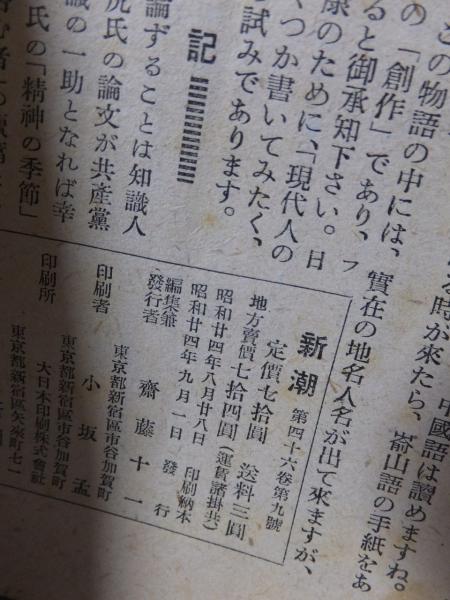 中國語は讀めますね。
る時が來たら、嵛山語の手紙をあ
實在の地名人名が出て來ますが、
この物語の中には、
の「創作」であり、フ
ると御承知下さい。日
康のために、「現代人の
くつか書いてみたく、
試みであります。
記
論ずることは知識人
氏の論文が共產黨
識の一助となれば幸
氏の「精神の季節」
新潮 第四十六卷第九號
定價七拾圓 送料三圓
地方賣價七拾四圓(運賃諸掛共)
昭和廿四年八月廿八日 印刷納本
昭和廿四年九月一日 發行
編集兼發行者 齋藤十一
東京都新宿區市谷加賀町
印刷者 小坂孟
東京都新宿區市谷加賀町
印刷所 大日本印刷株式會社
東京都新宿區矢來町七一